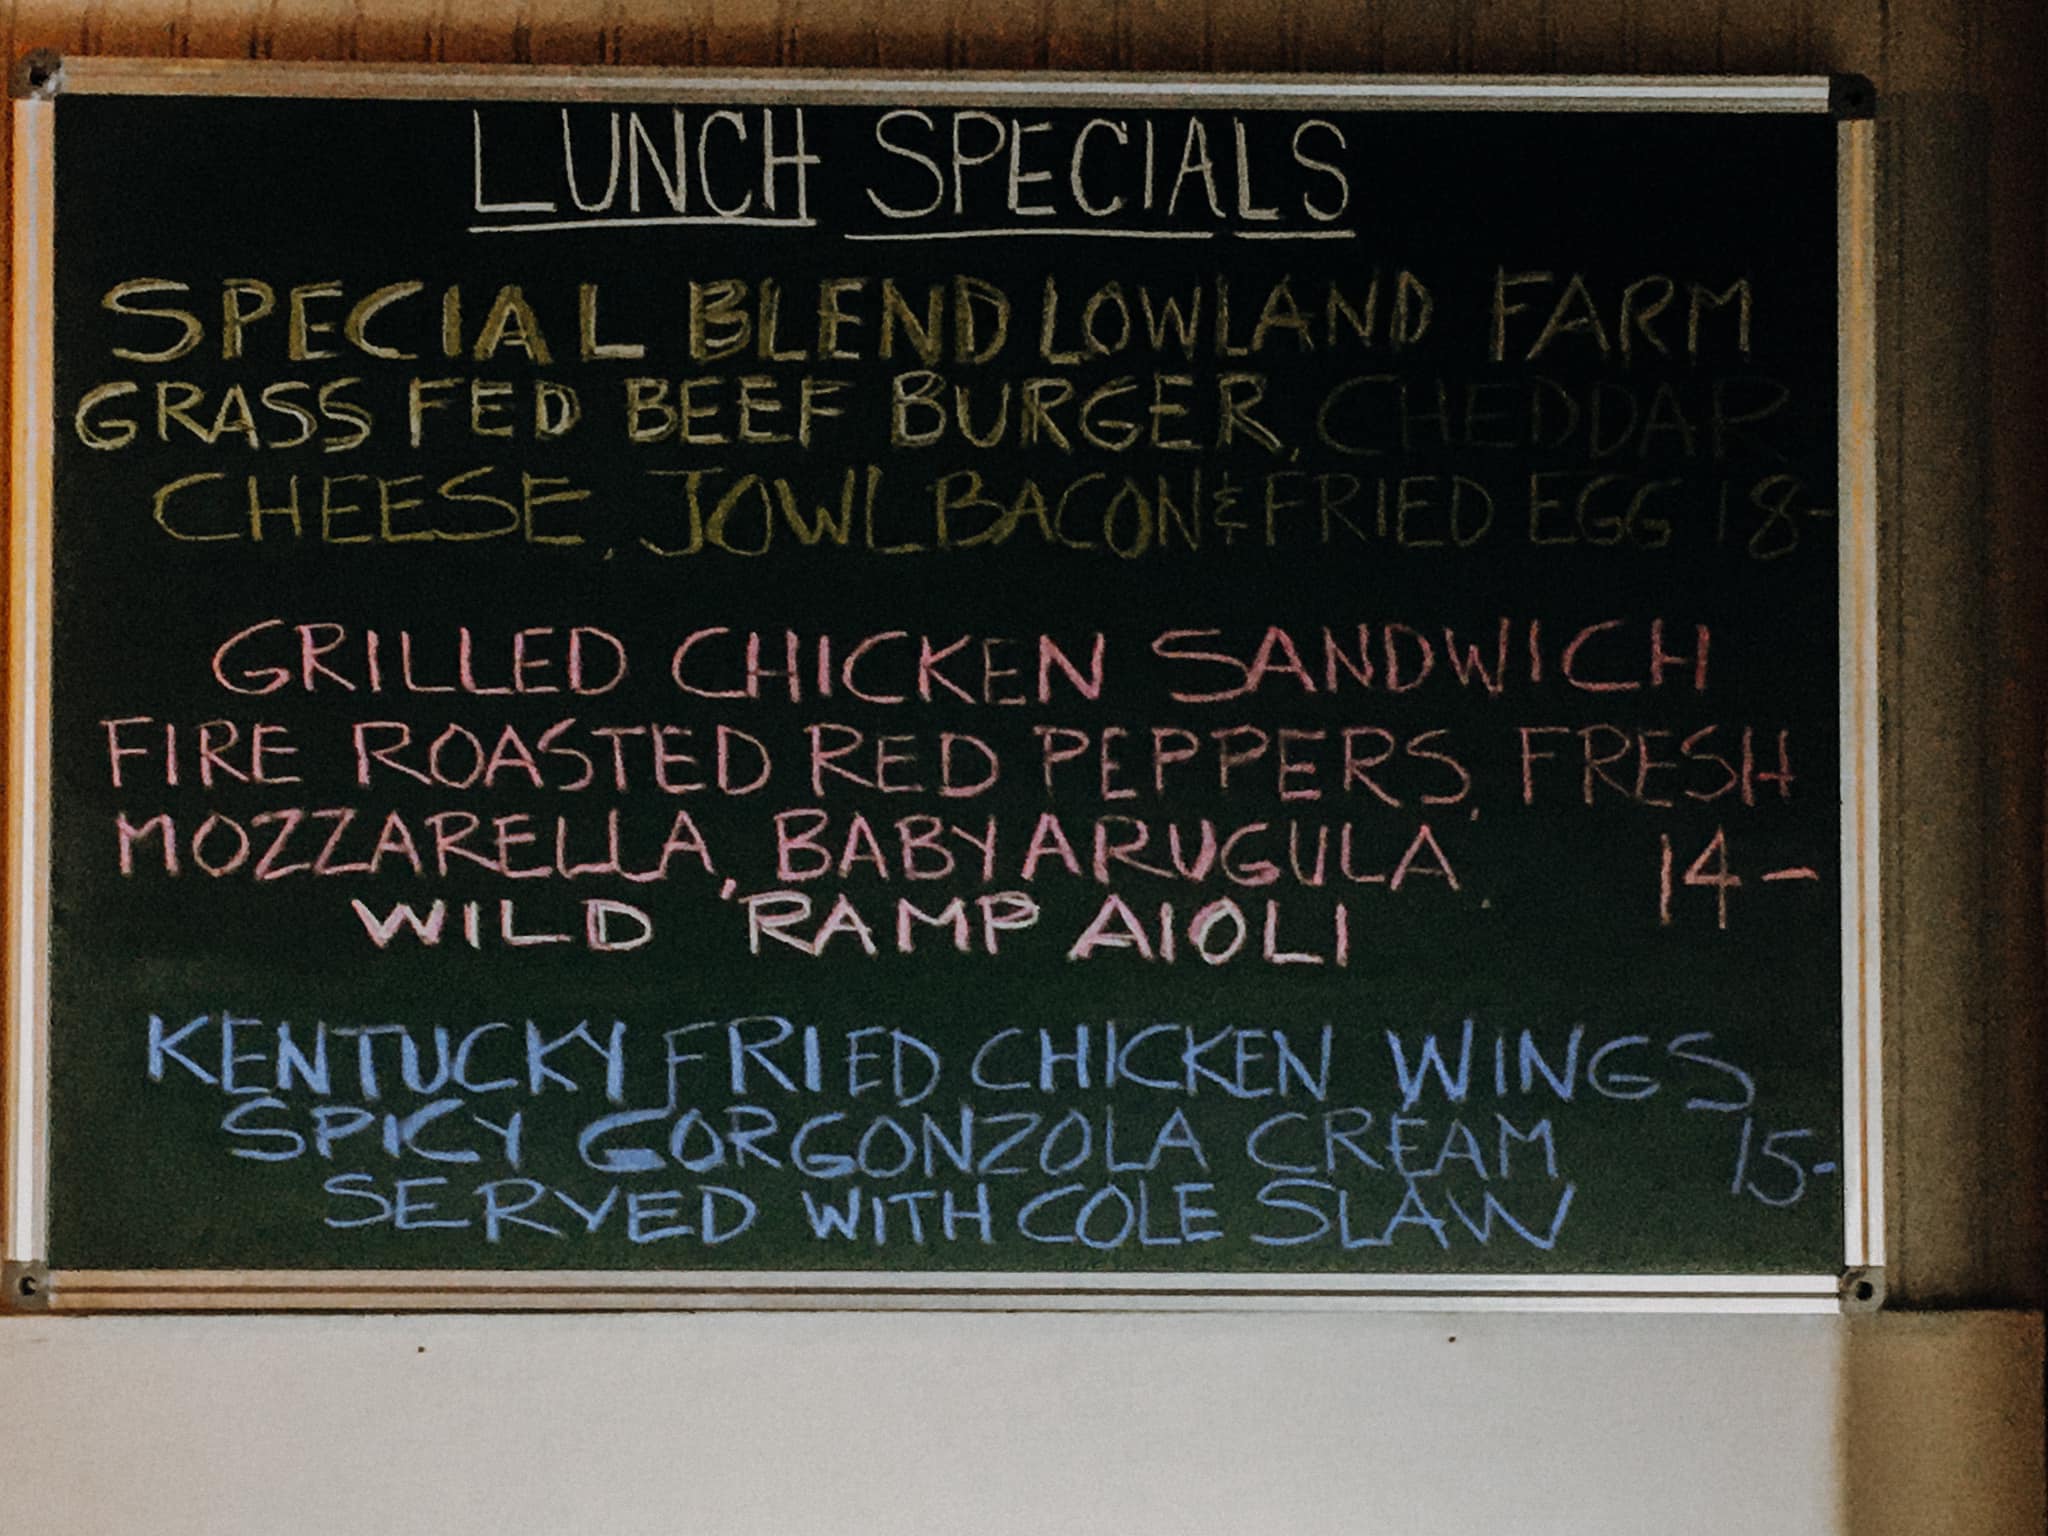 LUNCH SPECIALS
SPECIAL BLEND LOWLAND FARM
GRASS FED BEEF BURGER, CHEDDAR
CHEESE, JOWL BACON & FRIED EGG 18-
GRILLED CHICKEN SANDWICH
FIRE ROASTED RED PEPPERS, FRESH
MOZZARELLA, BABY ARUGULA 14-
WILD RAMP AIOLI
KENTUCKY FRIED CHICKEN WINGS
SPICY GORGONZOLA CREAM 15-
SERVED WITH COLE SLAW